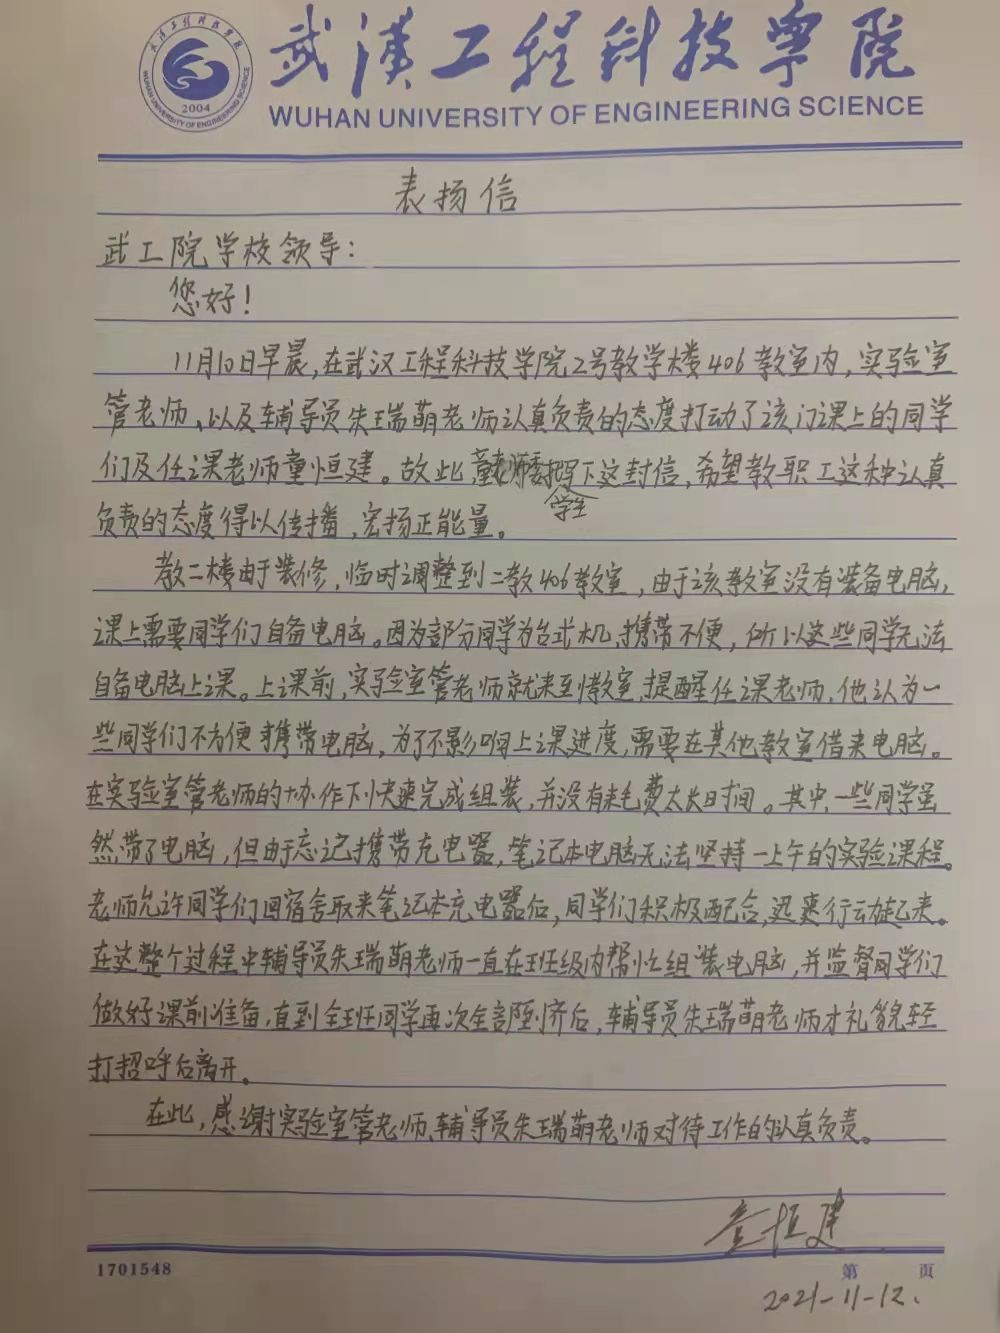 武汉工程科技学院
WUHAN UNIVERSITY OF ENGINEERING SCIENCE
2004
表扬信
武工院学校领导：
您好！
11月10日早晨，在武汉工程科技学院2号教学楼406教室内，实验室
管老师、以及辅导员朱瑞萌老师认真负责的态度打动了该门课上的同学
们及任课老师童恒建。故此童老师委托写下这封信，希望教职工这种认真
学生
负责的态度得以传播，宏扬正能量。
教二楼由于装修，临时调整到二教406教室，由于该教室没有装备电脑，
课上需要同学们自备电脑。因为部分同学为台式机，携带不便，所以这些同学无法
自备电脑上课。上课前，实验室管老师就来到教室，提醒任课老师，他认为一
些同学们不方便携带电脑，为了不影响上课进度，需要在其他教室借来电脑。
在实验室管老师的协作下快速完成组装，并没有耗费太长时间。其中，一些同学虽
然带了电脑，但由于忘记携带充电器，笔记本电脑无法坚持一上午的实验课程。
老师允许同学们回宿舍取来笔记本充电器后，同学们积极配合，迅速行动起来。
在这整个过程中辅导员朱瑞萌老师一直在班级内帮忙组装电脑，并监督同学们
做好课前准备，直到全班同学再次全部到齐后，辅导员朱瑞萌老师才礼貌轻
打招呼后离开。
在此，感谢实验室管老师、辅导员朱瑞萌老师对待工作的认真负责。
童恒建
1701548
第 页
2021-11-12.